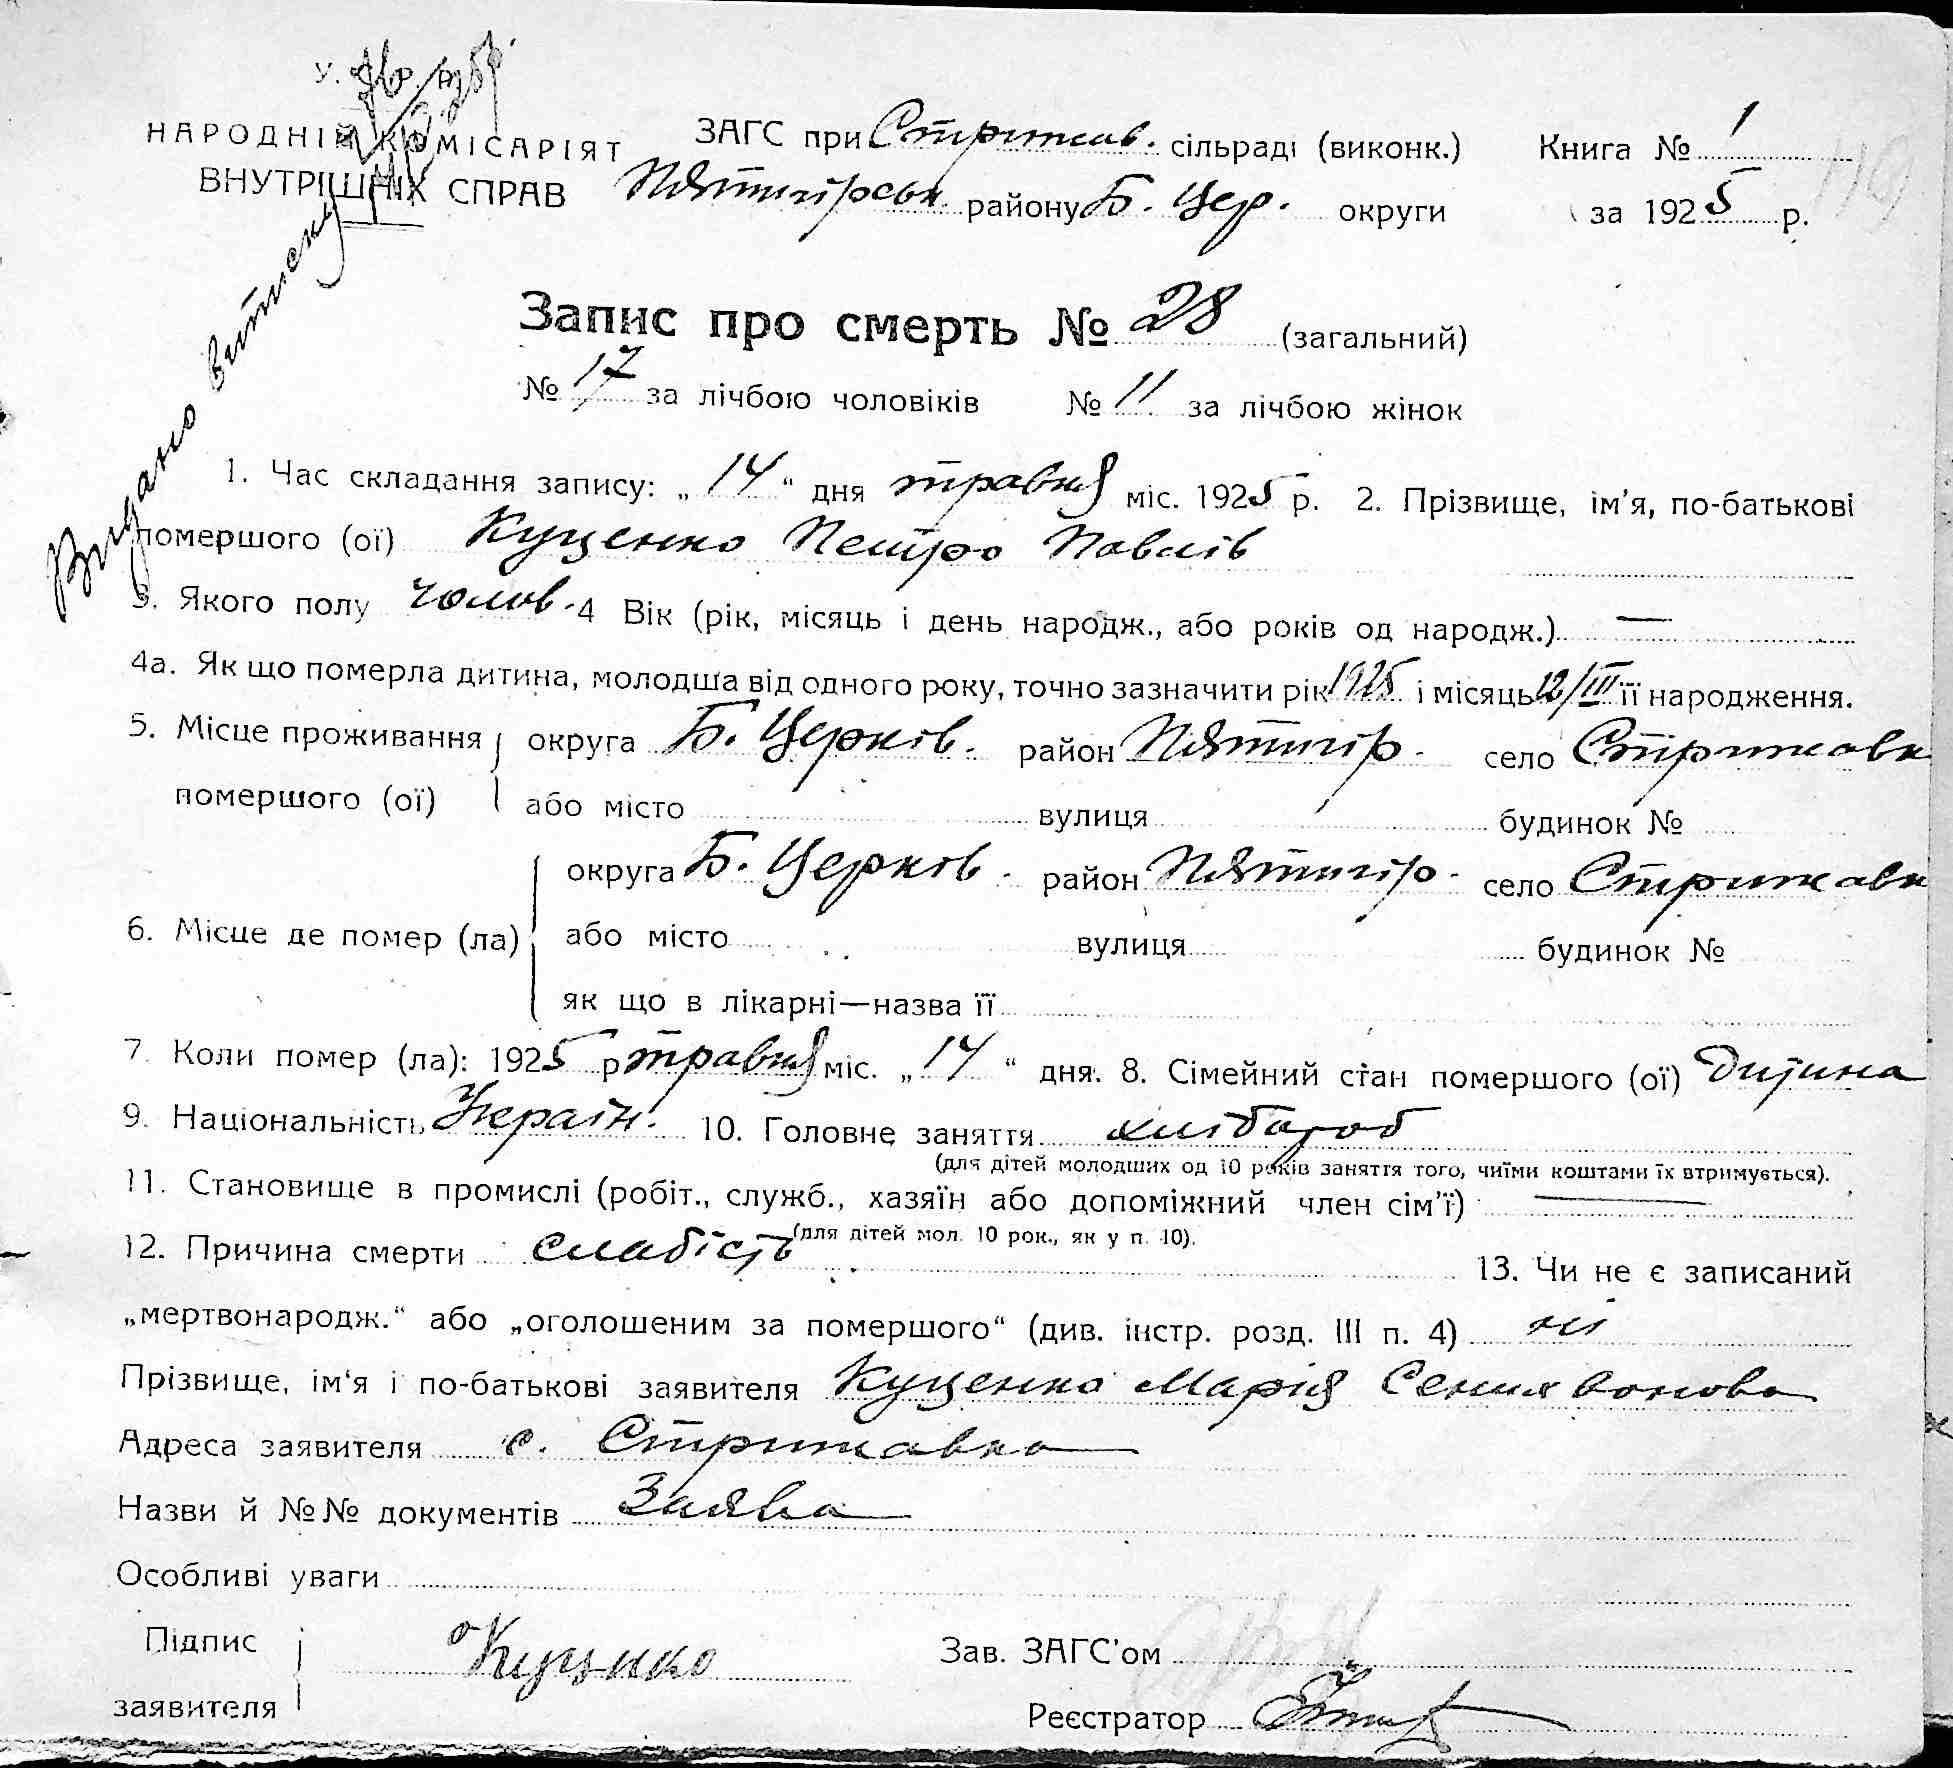 У. С. Р. Р.
НАРОДНІЙ КОМІСАРІЯТ
ВНУТРІШНІХ СПРАВ
Видано витиску
ЗАГС при Стрижав. сільраді (виконк.)
Пятигірськ. району Б. Цер. округи
Книга № 1
за 1925 р.
Запис про смерть № 28 (загальний)
№ 17 за лічбою чоловіків № 11 за лічбою жінок
1. Час складання запису: „14“ дня травня міс. 1925 р. 2. Прізвище, ім'я, по-батькові
помершого (ої) Куценко Петро Павлів
3. Якого полу чолов. 4 Вік (рік, місяць і день народж., або років од народж.) —
4а. Як що померла дитина, молодша від одного року, точно зазначити рік 1925 і місяць 12/III її народження.
5. Місце проживання помершого (ої) округа Б. Церків. район Пятигір. село Стрижавк
або місто вулиця будинок №
6. Місце де помер (ла) округа Б. Церків. район Пятигір. село Стрижавк
або місто вулиця будинок №
як що в лікарні—назва її
7. Коли помер (ла): 1925 р травня міс. „14“ дня. 8. Сімейний стан помершого (ої) дитина
9. Національність Україн. 10. Головне заняття хлібороб
(для дітей молодших од 10 років заняття того, чиїми коштами їх втримується).
11. Становище в промислі (робіт., служб., хазяїн або допоміжний член сім'ї) —
(для дітей мол. 10 рок., як у п. 10).
12. Причина смерти слабість 13. Чи не є записаний
„мертвонародж.“ або „оголошеним за помершого“ (див. інстр. розд. III п. 4) ні
Прізвище, ім'я і по-батькові заявителя Куценко Марія
Адреса заявителя с. Стрижавка
Назви й №№ документів Заява
Особливі уваги
Підпис заявителя Куценко
Зав. ЗАГС'ом
Реєстратор